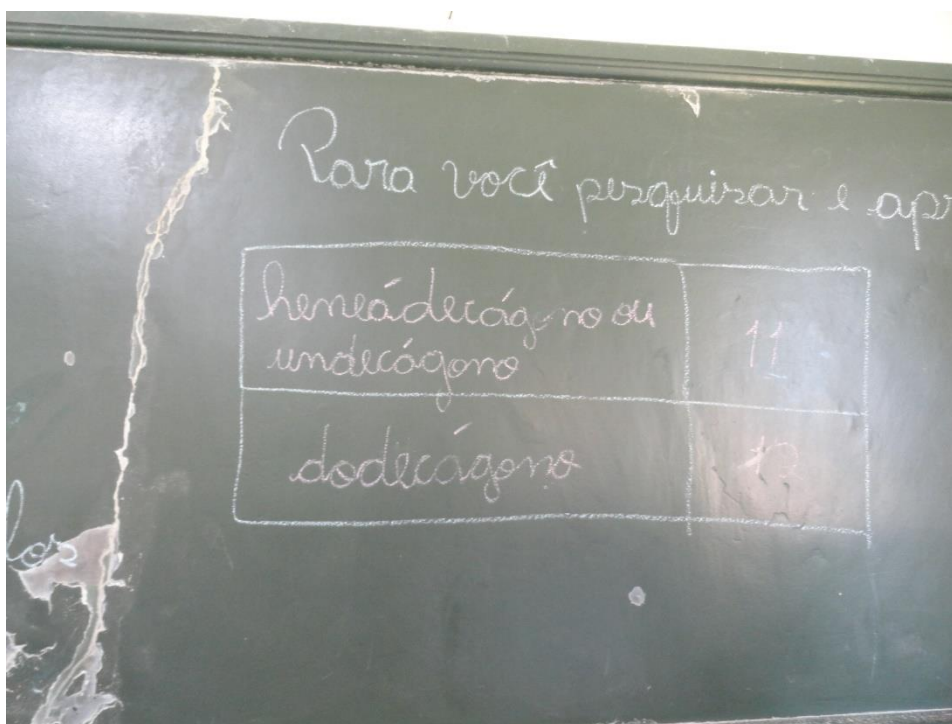 Para você pesquisar e apr
heneádecágono ou
undecágono
11
dodecágono
12
los